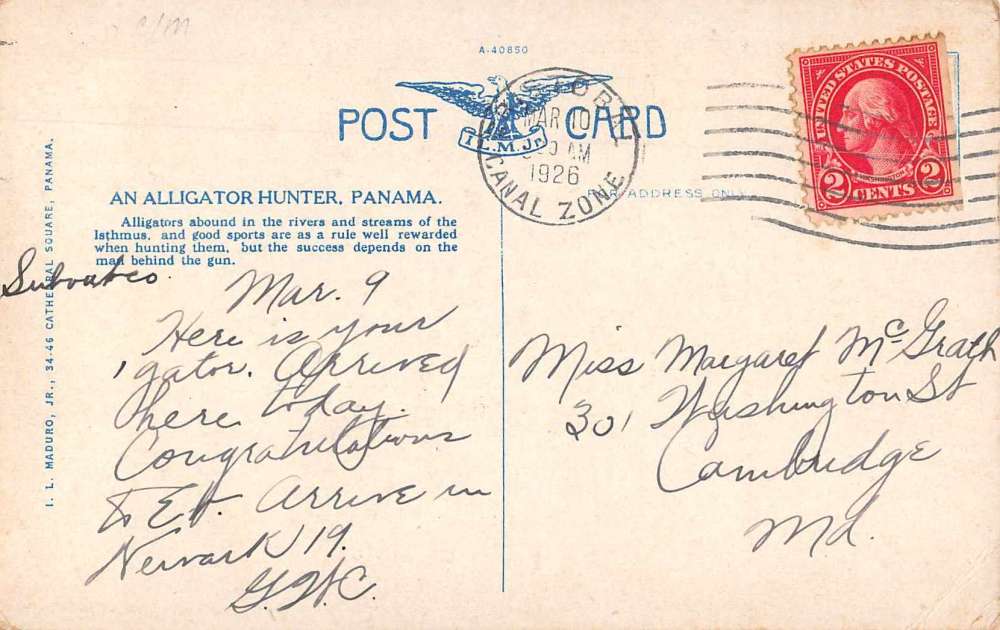 c/m
A-40850
POST CARD
I. L. M. Jr.
CRISTOBAL
MAR 10
AM
1926
CANAL ZONE
UNITED STATES POSTAGE
WASHINGTON
2 CENTS 2
FOR ADDRESS ONLY
AN ALLIGATOR HUNTER, PANAMA.
Alligators abound in the rivers and streams of the
Isthmus, and good sports are as a rule well rewarded
when hunting them, but the success depends on the
man behind the gun.
I. L. MADURO, JR., 34-46 CATHEDRAL SQUARE, PANAMA.
Mar. 9
Here is your
'gator. Arrived
here today.
Congratulations
to Ed. Arrive in
Newark 19.
G.W.C.
Miss Margaret McGrath
301 Washington St
Cambridge
Md.